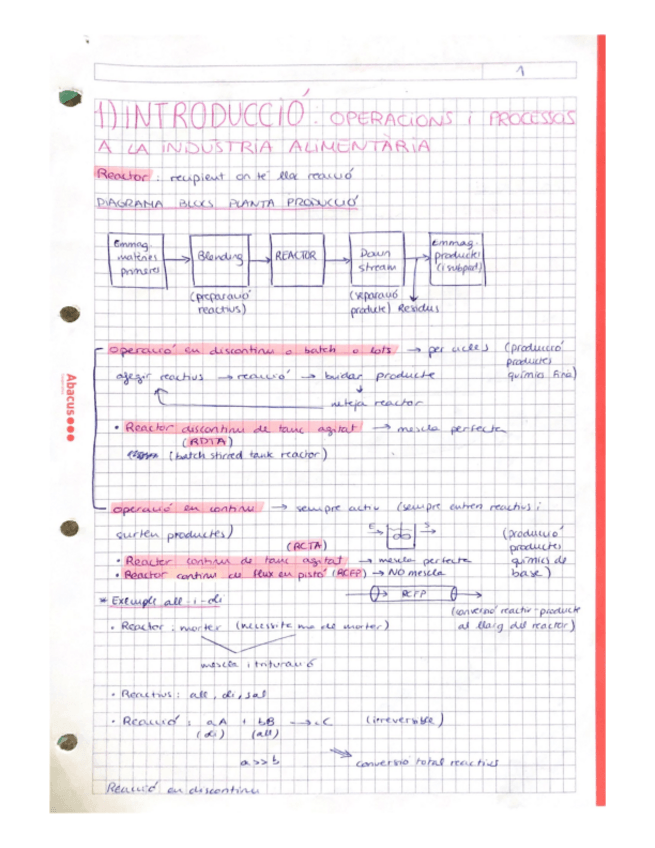 1
1) INTRODUCCIÓ: OPERACIONS i PROCESSOS
A LA INDÚSTRIA ALIMENTÀRIA
Reactor: recipient on té lloc reacció
DIAGRAMA BLOCS PLANTA PRODUCCIÓ
Emmag. matèries primeres
Blending
REACTOR
Down stream
emmag. productes (i subprod.)
(preparació reactius)
(separació producte)
Residus
operació en discontinu o batch o lots → per cicles (producció productes químics fina)
afegir reactius → reacció → buidar producte
neteja reactor
• Reactor discontinu de tanc agitat → mescla perfecta
(RDTA)
(batch stirred tank reactor)
operació en continu → sempre actiu (sempre entren reactius i
surten productes)
E
S
(producció productes químics de base)
(RCTA)
• Reactor continu de tanc agitat → mescla perfecta
• Reactor continu de flux en pistó (RCFP) → NO mescla
RCFP
(conversió reactiu-producte al llarg del reactor)
* Exemple all-i-oli
• Reactor: morter (necessite mà de morter)
mescla i trituració
• Reactius: all, oli, sal
• Reacció: aA + bB → C (irreversible)
(oli) (all)
a >> b
conversió total reactius
Reacció en discontinu
Abacus